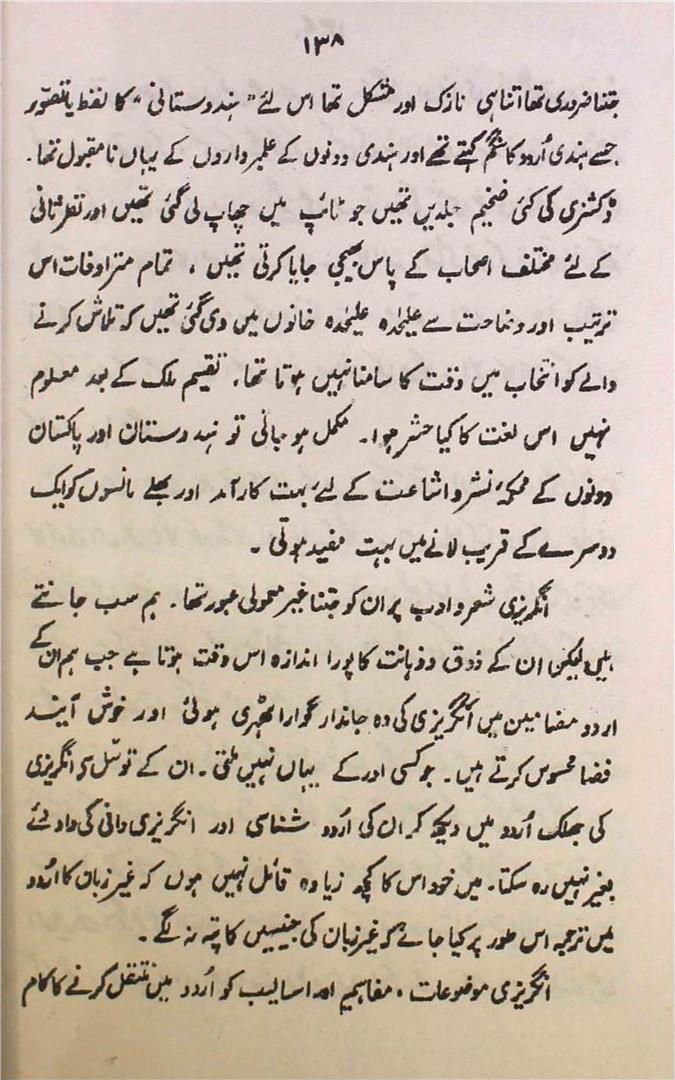 ۱۳۸
جتنا ضروری تھا اتنا ہی نازک اور مشکل تھا اس لئے "ہندوستانی" کا لفظ یا تصوّر
جسے ہندی اُردو کا سنگم کہتے تھے اور ہندی دونوں کے علمبرداروں کے یہاں نامقبول تھا۔
ڈکشنری کی کئی ضخیم جلدیں تھیں جو ٹائپ میں چھاپ لی گئی تھیں اور نظرثانی
کے لئے مختلف اصحاب کے پاس بھیجی جایا کرتی تھیں ، تمام مترادفات اس
ترتیب اور وضاحت سے علیحٰدہ علیحٰدہ خانوں میں دی گئی تھیں کہ تلاش کرنے
والے کو انتخاب میں دقت کا سامنا نہیں ہوتا تھا، تقسیم ملک کے بعد معلوم
نہیں اس لغت کا کیا حشر ہوا۔ مکمل ہو جاتی تو ہندوستان اور پاکستان
دونوں کے محکمۂ نشر و اشاعت کے لئے بہت کارآمد اور بھلے مانسوں کو ایک
دوسرے کے قریب لانے میں بہت مفید ہوتی ۔
انگریزی شعر و ادب پر ان کو جتنا غیر معمولی عبور تھا۔ ہم سب جانتے
ہیں لیکن ان کے ذوق و ذہانت کا پورا اندازہ اس وقت ہوتا ہے جب ہم ان کے
اردو مضامین میں انگریزی کی وہ جاندار گوارا ٹھہری ہوئی اور خوش آیند
فضا محسوس کرتے ہیں۔ جو کسی اور کے یہاں نہیں ملتی ۔ ان کے توسّل سے انگریزی
کی جھلک اُردو میں دیکھ کر ان کی اُردو شناسی اور انگریزی دانی کی داد دئے
بغیر نہیں رہ سکتا۔ میں خود اس کا کچھ زیادہ قائل نہیں ہوں کہ غیر زبان کا اُردو
میں ترجمہ اس طور پر کیا جائے کہ غیر زبان کی جینیس کا پتہ نہ لگے ۔
انگریزی موضوعات ، مفاہیم اور اسالیب کو اُردو میں منتقل کرنے کا کام